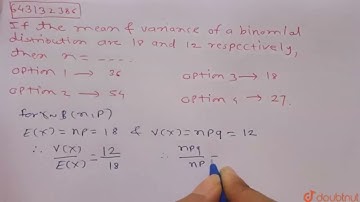 643132386
If the mean & variance of a binomial
distribution are 18 and 12 respectively,
then n = ----.
option 1 → 36 option 3 → 18
option 2 → 54 option 4 → 27.
for X~B(n,P)
E(X) = np = 18 & V(X) = npq = 12
∴ V(X)/E(X) = 12/18 ∴ npq/np =
doubtnut